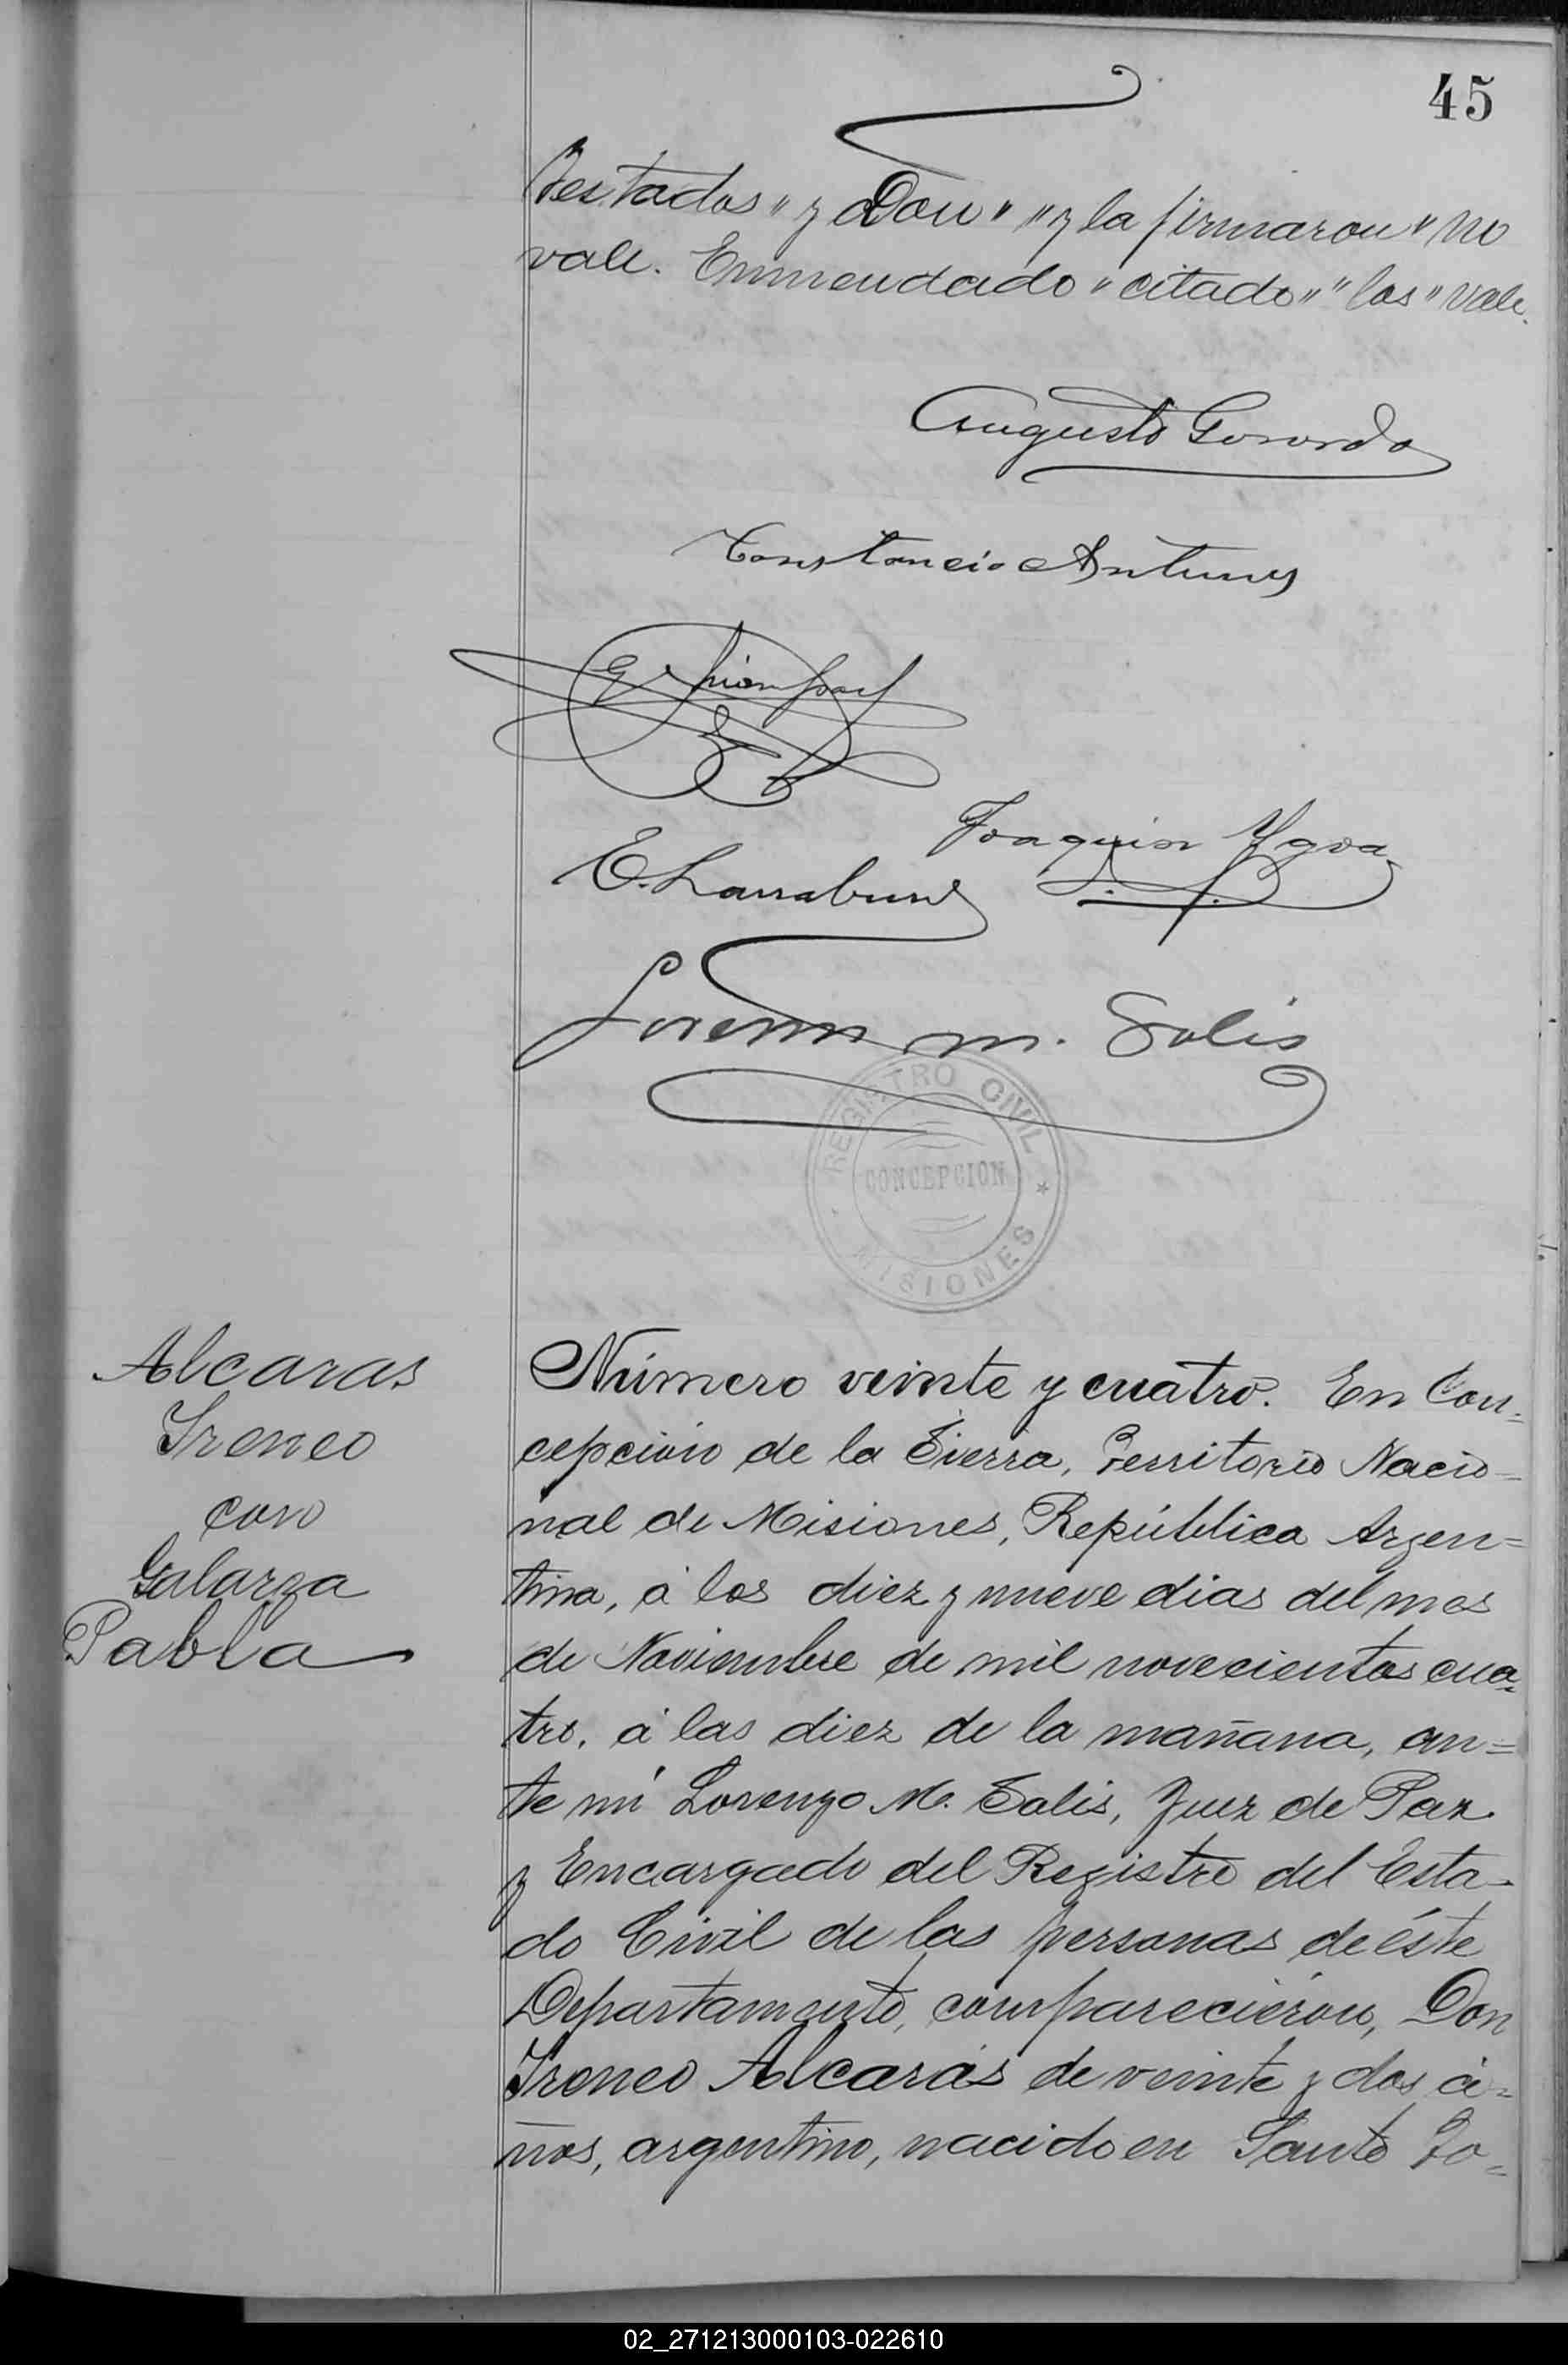 45
Testados "y Don" "y la firmaron" no
vale. Enmendado "citado" "los" vale.
Augusto Gorordo
Constancio Antunes
Joaquin Ygoa
E. Larraburu
Lorenzo M. Solis
REGISTRO CIVIL
CONCEPCION
MISIONES
Alcaras
Ireneo
con
Galarza
Pabla
Número veinte y cuatro. En Con=
cepción de la Sierra, Territorio Nacio=
nal de Misiones, República Argen=
tina, á los diez y nueve dias del mes
de Noviembre de mil novecientos cua=
tro, á las diez de la mañana, an=
te mí Lorenzo M. Solis, Juez de Paz
y Encargado del Registro del Esta=
do Civil de las personas de éste
Departamento, comparecieron, Don
Ireneo Alcarás de veinte y dos a=
ños, argentino, nacido en Santo To=
02_271213000103-022610